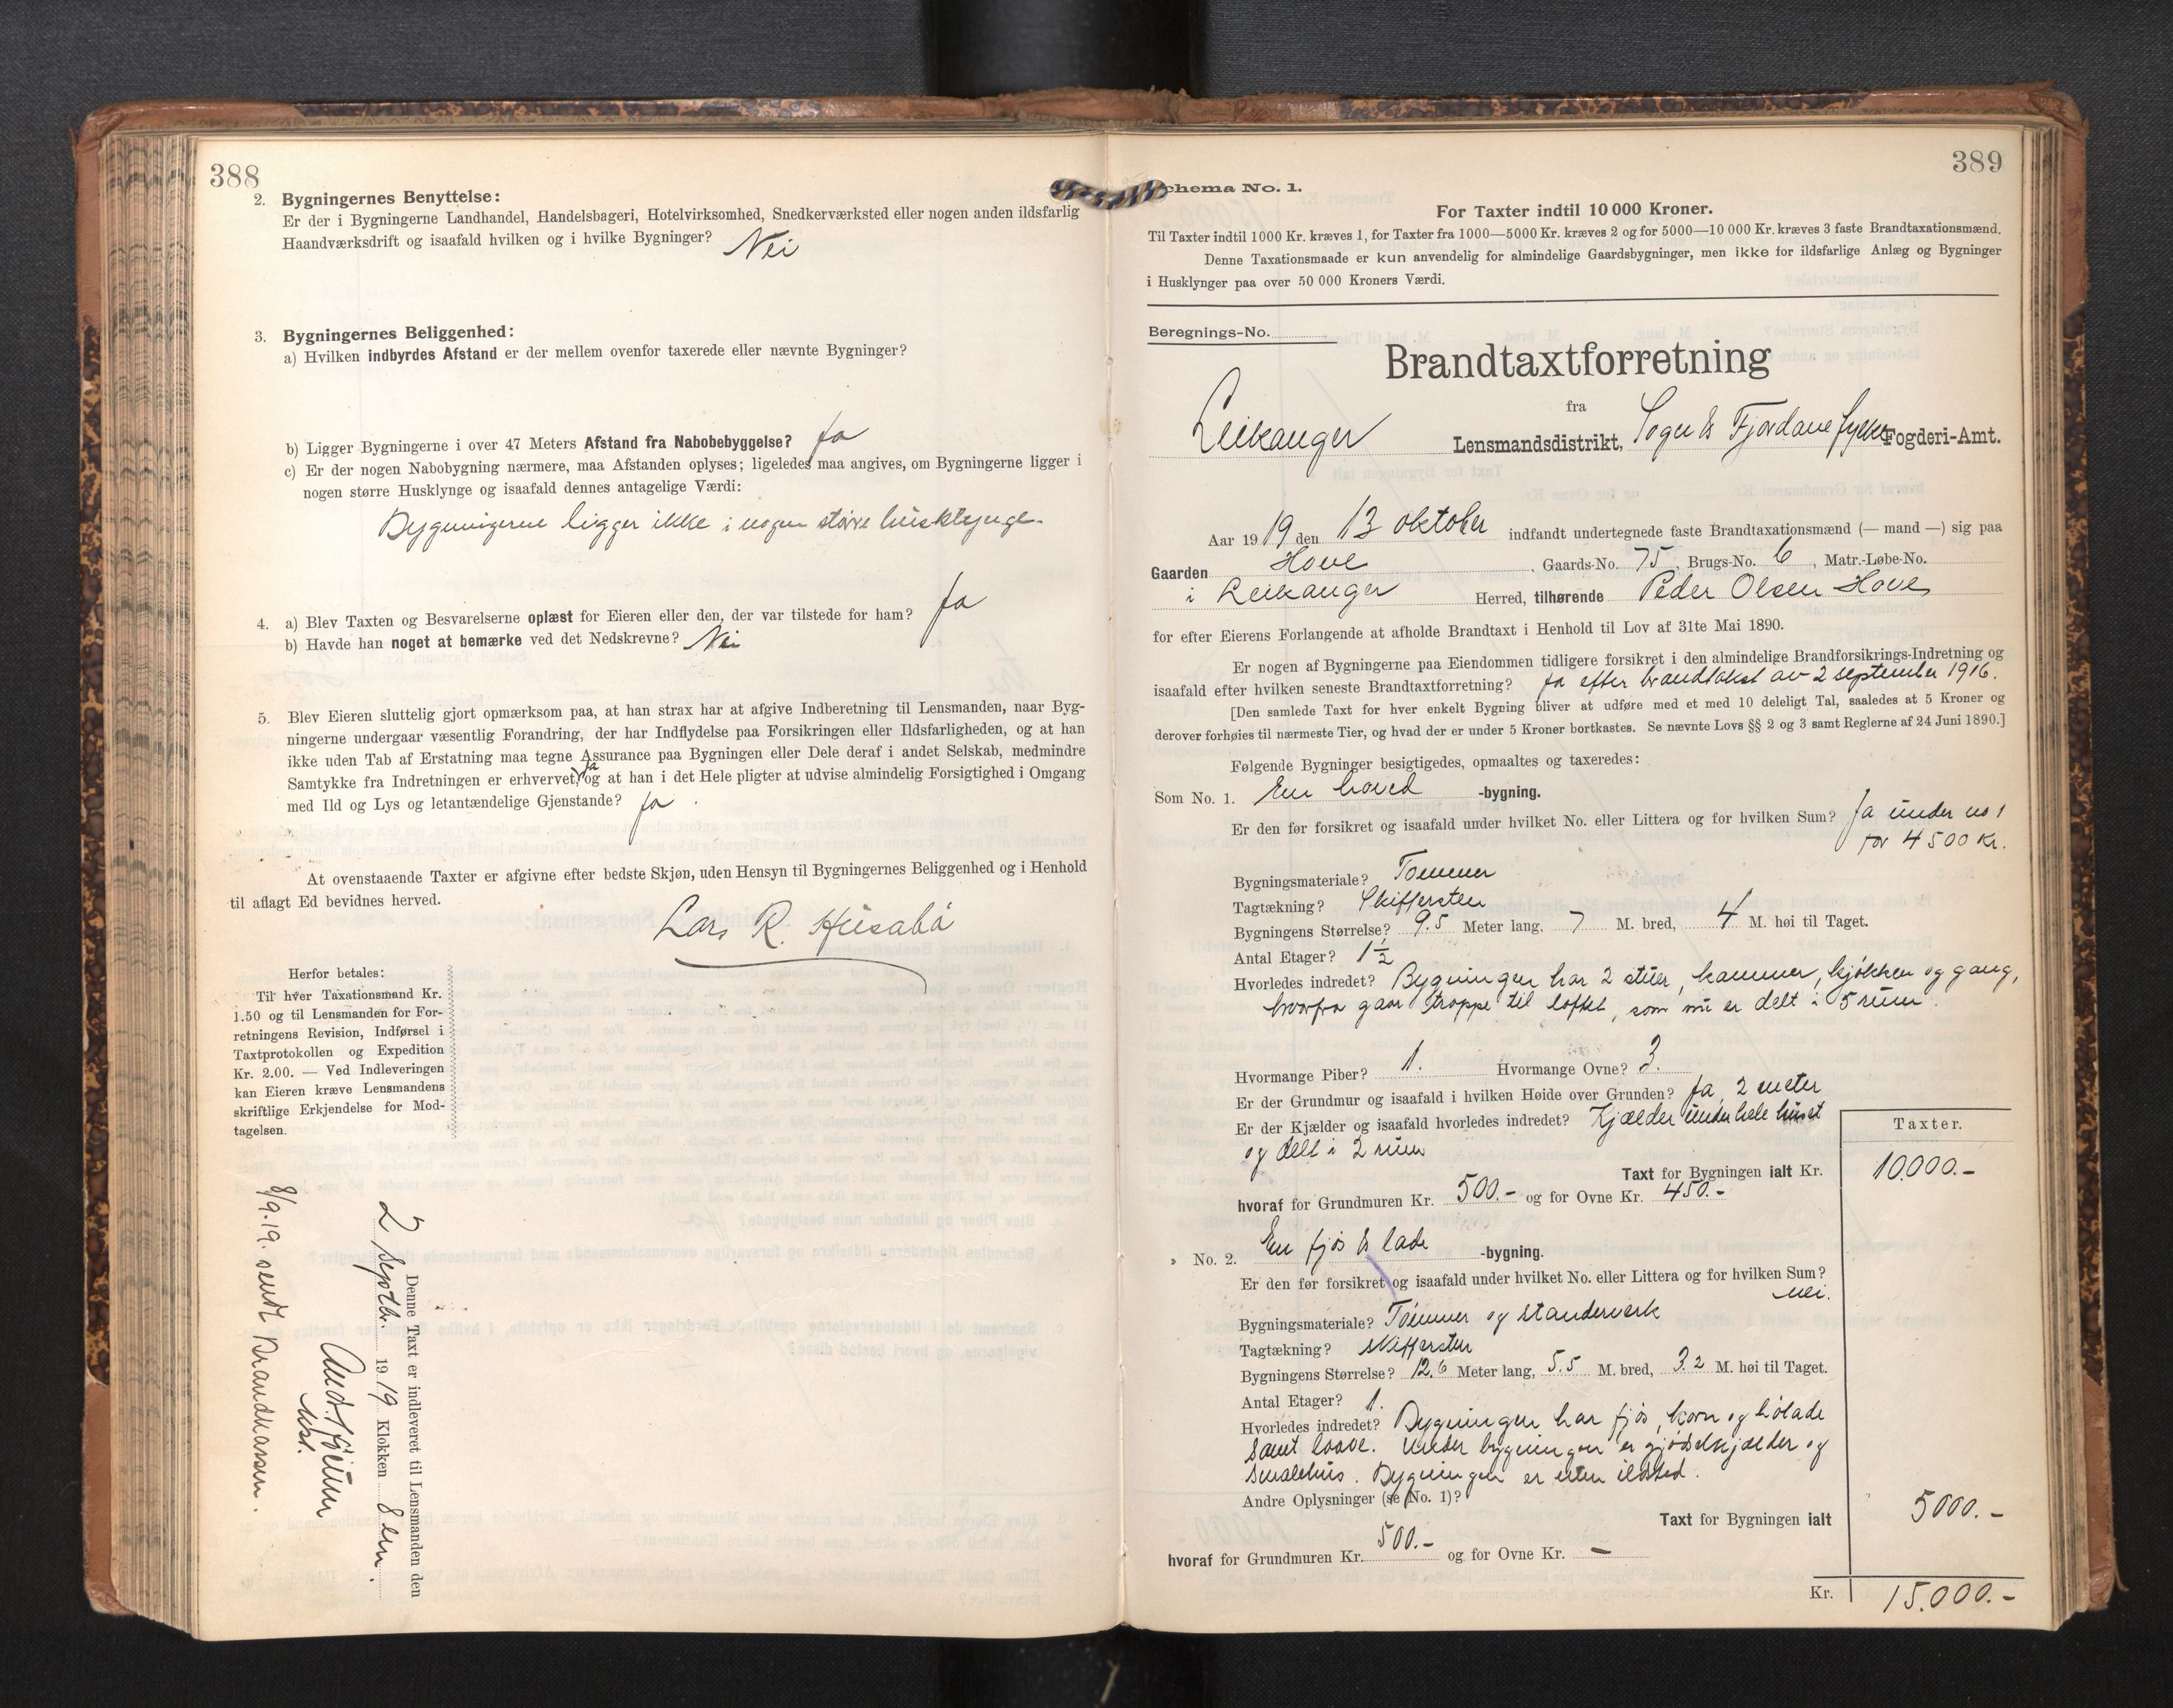 388
2. Bygningernes Benyttelse:
Er der i Bygningerne Landhandel, Handelsbageri, Hotelvirksomhed, Snedkerværksted eller nogen anden ildsfarlig
Haandværksdrift og isaafald hvilken og i hvilke Bygninger? Nei
3. Bygningernes Beliggenhed:
a) Hvilken indbyrdes Afstand er der mellem ovenfor taxerede eller nævnte Bygninger?
b) Ligger Bygningerne i over 47 Meters Afstand fra Nabobebyggelse? Ja
c) Er der nogen Nabobygning nærmere, maa Afstanden oplyses; ligeledes maa angives, om Bygningerne ligger i
nogen større Husklynge og isaafald dennes antagelige Værdi:
Bygningerne ligger ikke i nogen större husklynge.
4. a) Blev Taxten og Besvarelserne oplæst for Eieren eller den, der var tilstede for ham? Ja
b) Havde han noget at bemærke ved det Nedskrevne? Nei
5. Blev Eieren sluttelig gjort opmærksom paa, at han strax har at afgive Indberetning til Lensmanden, naar Byg-
ningerne undergaar væsentlig Forandring, der har Indflydelse paa Forsikringen eller Ildsfarligheden, og at han
ikke uden Tab af Erstatning maa tegne Assurance paa Bygningen eller Dele deraf i andet Selskab, medmindre
Samtykke fra Indretningen er erhvervet, Ja og at han i det Hele pligter at udvise almindelig Forsigtighed i Omgang
med Ild og Lys og letantændelige Gjenstande? Ja
At ovenstaaende Taxter er afgivne efter bedste Skjøn, uden Hensyn til Bygningernes Beliggenhed og i Henhold
til aflagt Ed bevidnes herved.
Lars R. Husabö
Herfor betales:
Til hver Taxationsmand Kr.
1.50 og til Lensmanden for For-
retningens Revision, Indførsel i
Taxtprotokollen og Expedition
Kr. 2.00. — Ved Indleveringen
kan Eieren kræve Lensmandens
skriftlige Erkjendelse for Mod-
tagelsen.
Denne Taxt er indleveret til Lensmanden den
2 septbr. 1919 Klokken 8 em.
8/9.19. sendt Brandkassen.
389
Schema No. 1.
For Taxter indtil 10 000 Kroner.
Til Taxter indtil 1000 Kr. kræves 1, for Taxter fra 1000—5000 Kr. kræves 2 og for 5000—10 000 Kr. kræves 3 faste Brandtaxationsmænd.
Denne Taxationsmaade er kun anvendelig for almindelige Gaardsbygninger, men ikke for ildsfarlige Anlæg og Bygninger
i Husklynger paa over 50 000 Kroners Værdi.
Beregnings-No.
Brandtaxtforretning
fra
Leikanger Lensmandsdistrikt, Sogn & Fjordane fylke Fogderi-Amt.
Aar 1919 den 13 oktober indfandt undertegnede faste Brandtaxationsmænd (— mand —) sig paa
Gaarden Hove, Gaards-No. 75, Brugs-No. 6, Matr.-Løbe-No.
i Leikanger Herred, tilhørende Peder Olsen Hove
for efter Eierens Forlangende at afholde Brandtaxt i Henhold til Lov af 31te Mai 1890.
Er nogen af Bygningerne paa Eiendommen tidligere forsikret i den almindelige Brandforsikrings-Indretning og
isaafald efter hvilken seneste Brandtaxtforretning? Ja efter brandtakst av 2 september 1916.
[Den samlede Taxt for hver enkelt Bygning bliver at udføre med et med 10 deleligt Tal, saaledes at 5 Kroner og
derover forhøies til nærmeste Tier, og hvad der er under 5 Kroner bortkastes. Se nævnte Lovs §§ 2 og 3 samt Reglerne af 24 Juni 1890.]
Følgende Bygninger besigtigedes, opmaaltes og taxeredes:
Som No. 1. En hoved -bygning.
Er den før forsikret og isaafald under hvilket No. eller Littera og for hvilken Sum? Ja under no 1
for 4500 Kr.
Bygningsmateriale? Tömmer
Tagtækning? Skiffersten
Bygningens Størrelse? 9.5 Meter lang, 7 M. bred, 4 M. høi til Taget.
Antal Etager? 1½
Hvorledes indredet? Bygningen har 2 stuer, kammer, kjökken og gang,
hvorfra gaar trappe til loftet, som nu er delt i 5 rum
Hvormange Piber? 1. Hvormange Ovne? 3.
Er der Grundmur og isaafald i hvilken Høide over Grunden? Ja, 2 meter
Er der Kjælder og isaafald hvorledes indredet? Kjælder under hele huset
og delt i 2 rum
Taxter.
Taxt for Bygningen ialt Kr. 10.000.-
hvoraf for Grundmuren Kr. 500.- og for Ovne Kr. 450.-
» No. 2. En fjös & lade -bygning.
Er den før forsikret og isaafald under hvilket No. eller Littera og for hvilken Sum?
nei.
Bygningsmateriale? Tömmer og standerverk
Tagtækning? skiffersten
Bygningens Størrelse? 12.6 Meter lang, 5.5 M. bred, 3.2 M. høi til Taget.
Antal Etager? 1.
Hvorledes indredet? Bygningen har fjös, korn og hölade
samt laave. Under bygningen er gjödselkjælder og
smalehus. Bygningen er uten ildsted.
Andre Oplysninger (se No. 1)?
Taxt for Bygningen ialt 5000.-
hvoraf for Grundmuren Kr. 500.- og for Ovne Kr. —
Kr. 15.000.-